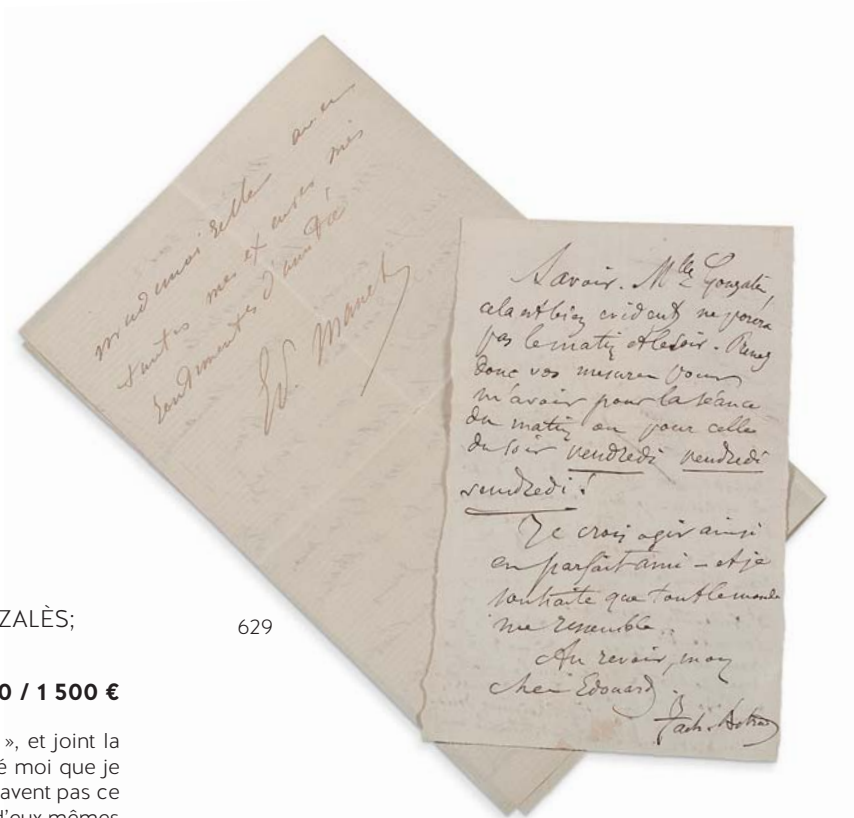 mademoiselle avec
toutes mes excuses mes
sentiments d'amitié
Ed. Manet
Savoir. Mlle Gonzalès,
cela est bien évident ne posera
pas le matin et le soir. Prenez
donc vos mesures pour
m'avoir pour la séance
du matin ou pour celle
du soir vendredi vendredi
vendredi !
Je crois agir ainsi
en parfait ami – et je
souhaite que tout le monde
me ressemble.
Au revoir, mon
cher Edouard
Zach. Astruc
ZALÈS;
629
0 / 1 500 €
», et joint la
é moi que je
avent pas ce
d'eux mêmes